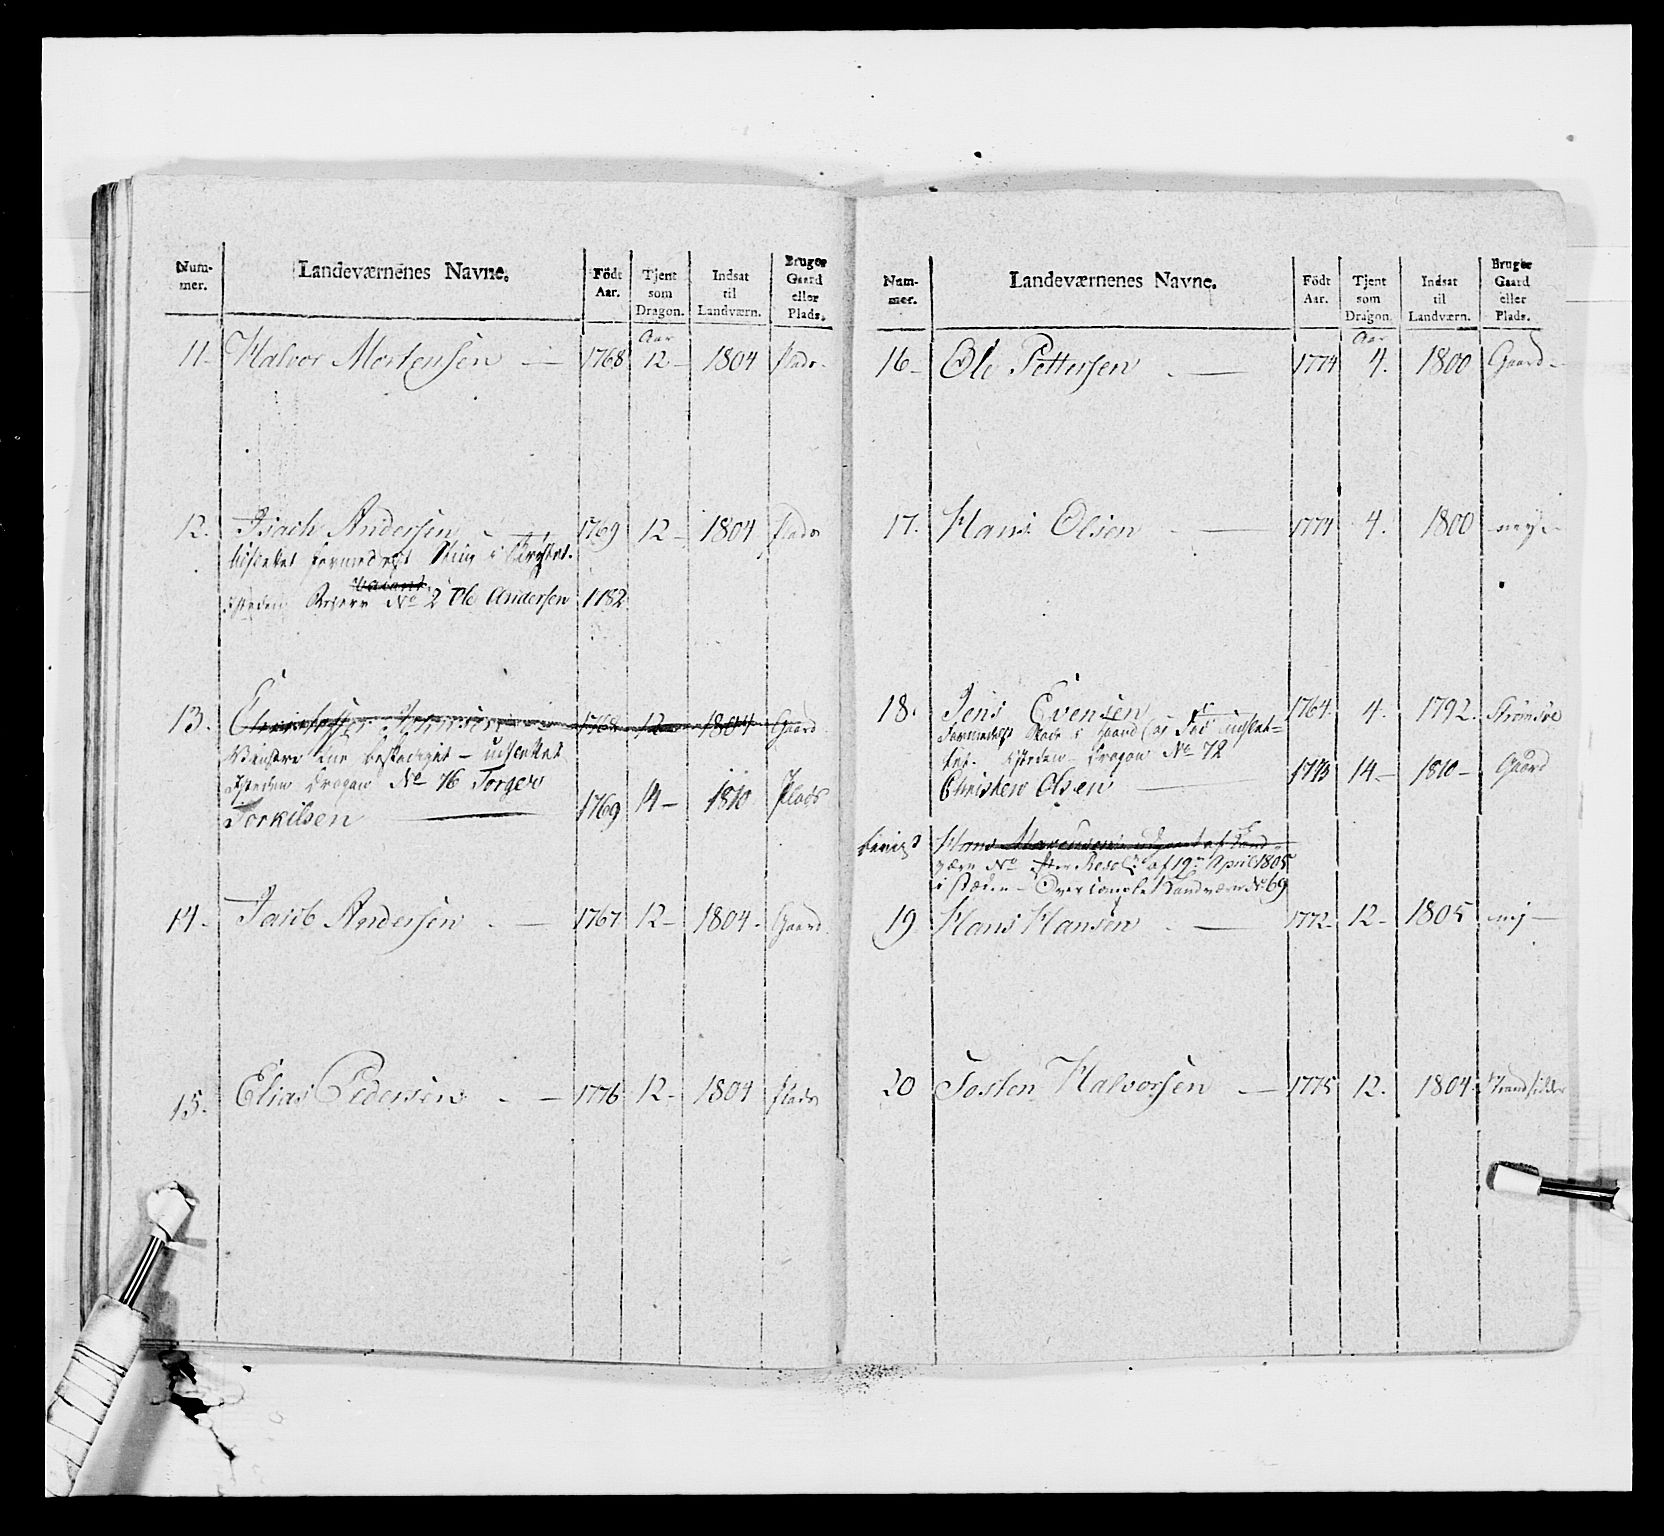 Num- Landeværnenes Navne. Födt Tjent Indsat Bruger
mer. Aar. som til Gaard
Dragon. Landværn. eller
Plads.
Aar
11. Halvor Mortensen 1768 12 1804 plads
12. Isach Andersen 1769 12 1804 plads
Vacant
Isteden Reserv No 2 Ole Andersen 1782
13. Christopher 1768 12 1804 Gaard
Venstre beskadiget udslettet
Isteden Dragon No 76 Torger
Torkilsen 1769 14 1810 Plads
14. Jacob Andersen 1767 12 1804 Gaard
15. Elias Pedersen 1776 12 1804 plads
Num- Landeværnenes Navne. Födt Tjent Indsat Bruger
mer. Aar. som til Gaard
Dragon. Landværn. eller
Plads.
Aar
16 Ole Pettersen 1774 4. 1800 Gaard
17. Hans Olsen 1774 4. 1800
18. Jens Evensen 1764 4. 1792. Strömsöe
Isteden Dragon No 72
Christen Olsen 1773 14 1810 Gaard
Hans
værn No efter Resol: af 19de April 1805
i stæden Overcomplet Landværn No 69
19 Hans Hansen 1772 12 1805 nej
20 Tosten Halvorsen 1775 12. 1804 Strandsidder